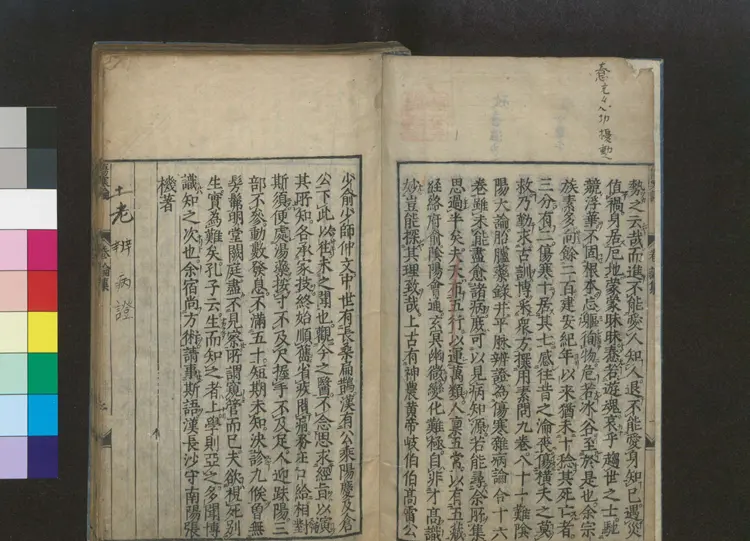 勢之云哉而進不能愛人知人退不能愛身知己遇災
值禍身居厄地蒙蒙昧昧惷若遊魂哀乎趨世之士馳
競浮華不固根本忘軀徇物危若冰谷至於是也余宗
族素多向餘二百建安紀年以來猶未十稔其死亡者
三分有二傷寒十居其七感往昔之淪喪傷横夭之莫
救乃勤求古訓博采衆方撰用素問九卷八十一難陰
陽大論胎臚藥錄并平脉辨證為傷寒雜病論合十六
卷雖未能盡愈諸病庶可以見病知源若能尋余所集
思過半矣夫天布五行以運萬類人稟五常以有五藏
經絡府俞陰陽會通玄冥幽微變化難極自非才高識
妙豈能探其理致哉上古有神農黄帝岐伯伯高雷公
少俞少師仲文中世有長桑扁鵲漢有公乘陽慶及倉
公下此以往未之聞也觀今之醫不念思求經旨以演
其所知各承家技終始順舊省疾問病務在口給相對
斯須便處湯藥按寸不及尺握手不及足人迎趺陽三
部不參動數發息不滿五十短期未知決診九候曾無
髣髴明堂闕庭盡不見察所謂窺管而已夫欲視死別
生實為難矣孔子云生而知之者上學則亞之多聞博
識知之次也余宿尚方術請事斯語漢長沙守南陽張
機著
辨病證